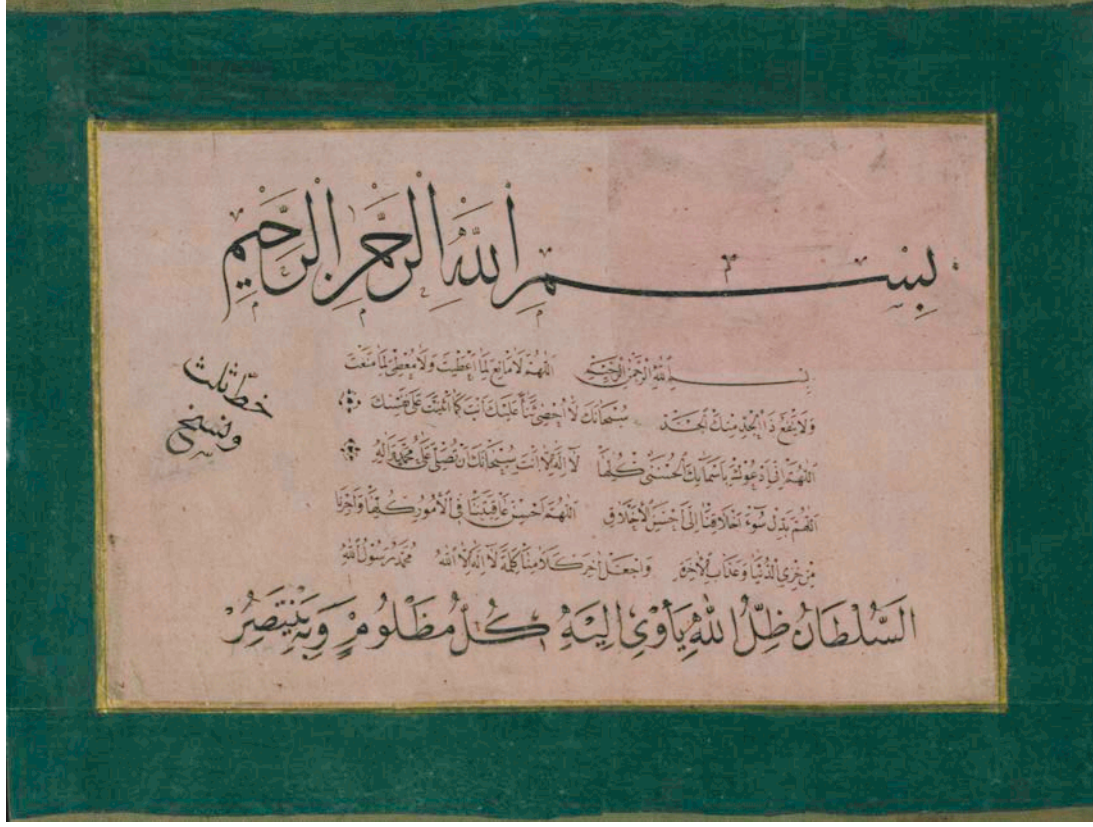 بِسْمِ اللهِ الرَّحْمٰنِ الرَّحِيْمِ
بسم الله الرحمن الرحيم اللهم لا مانع لما اعطيت ولا معطى لما منعت
ولا ينفع ذا الجد منك الجد سبحانك لا احصى ثناء عليك انت كما اثنيت على نفسك
اللهم انى ادعوك باسمائك الحسنى كلها لا اله الا انت سبحانك ان تصلى على محمد واله
اللهم بدل سوء اخلاقنا الى احسن الاخلاق اللهم احسن عاقبتنا فى الامور كلها واجرنا
من خزى الدنيا وعذاب الاخرة واجعل اخر كلامنا كلمة لا اله الا الله محمد رسول الله
السُّلْطَانُ ظِلُّ اللهِ يَأْوِى اِلَيْهِ كُلُّ مَظْلُومٍ وَبِهِ يَنْتَصِرُ
خط ثلث
ونسخ